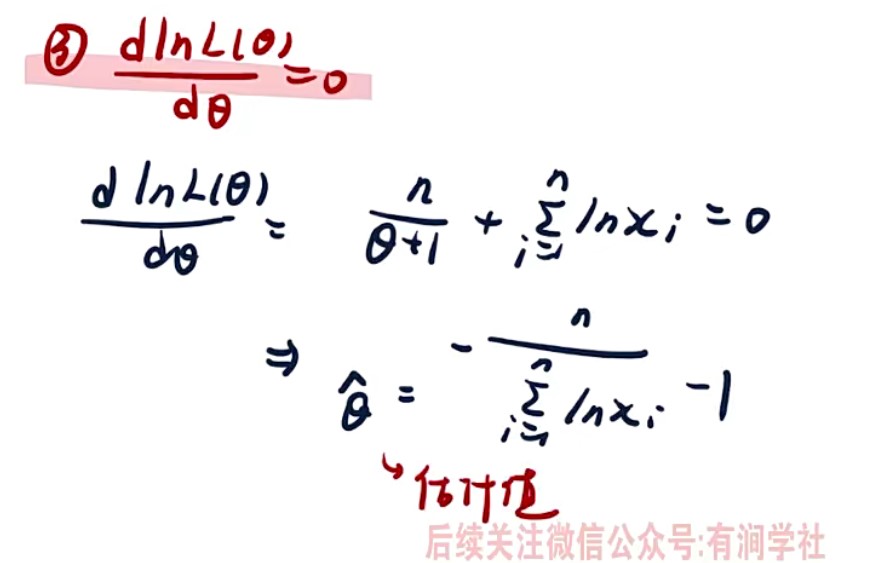 ③ dlnL(θ)/dθ = 0
dlnL(θ)/dθ = n/(θ+1) + ∑_{i=1}^{n} lnx_i = 0
⇒ θ̂ = - n/(∑_{i=1}^{n} lnx_i) - 1
↳ 估计值
后续关注微信公众号:有涧学社